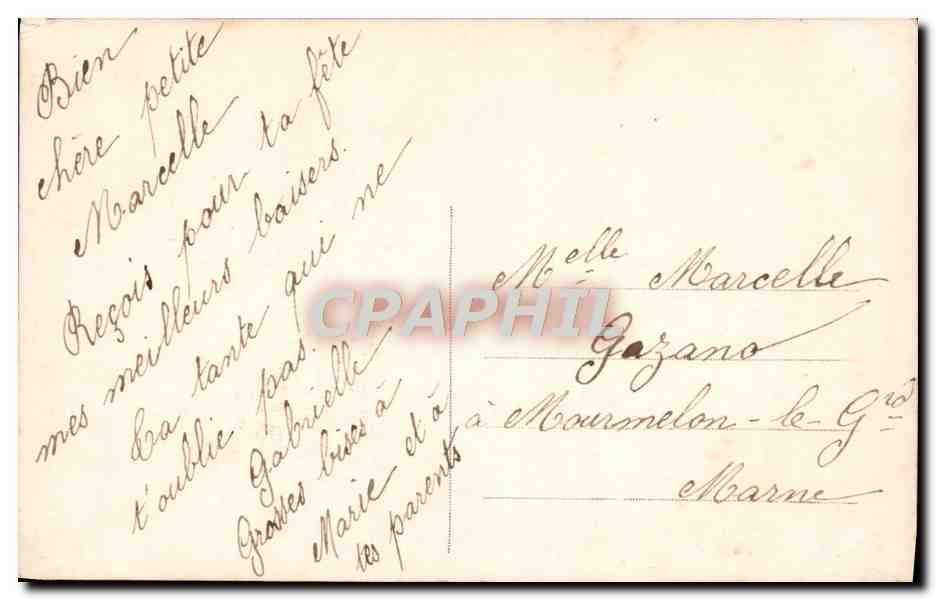 Bien
chère petite
Marcelle
Reçois pour ta fête
mes meilleurs baisers.
Ta tante qui ne
t'oublie pas.
Gabrielle
Grosses bises à
Marie et à
tes parents
Melle Marcelle
Gazano
à Mourmelon-le-Grd
Marne
CPAPHIL